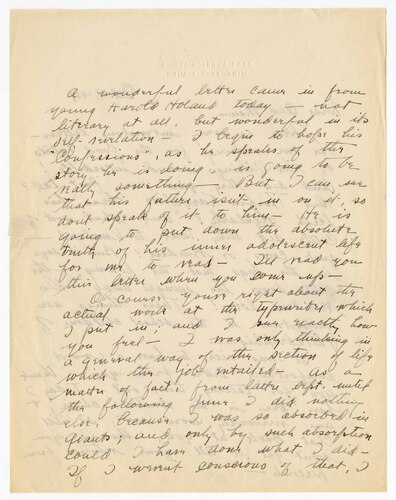 A wonderful letter came in from
young Harold Holand today — not
literary at all, but wonderful in its
self-revelation — I begin to hope his
"Confessions", as he speaks of the
story he is doing is going to be
really something — But I can see
that his father isn't in on it, so
don't speak of it to him — He is
going to put down the absolute
truth of his inner adolescent life
for me to read — I'll read you
this letter when you come up —
Of course you're right about the
actual work at the typewriter which
I put in; and I see exactly how
you feel — I was only thinking in
a general way of the section of life
which the job entailed — As a
matter of fact, from latter Sept. until
the following June I did nothing
else, because I was so absorbed in
Giants; and only by such absorption
could I have done what I did —
If I weren't conscious of that, I